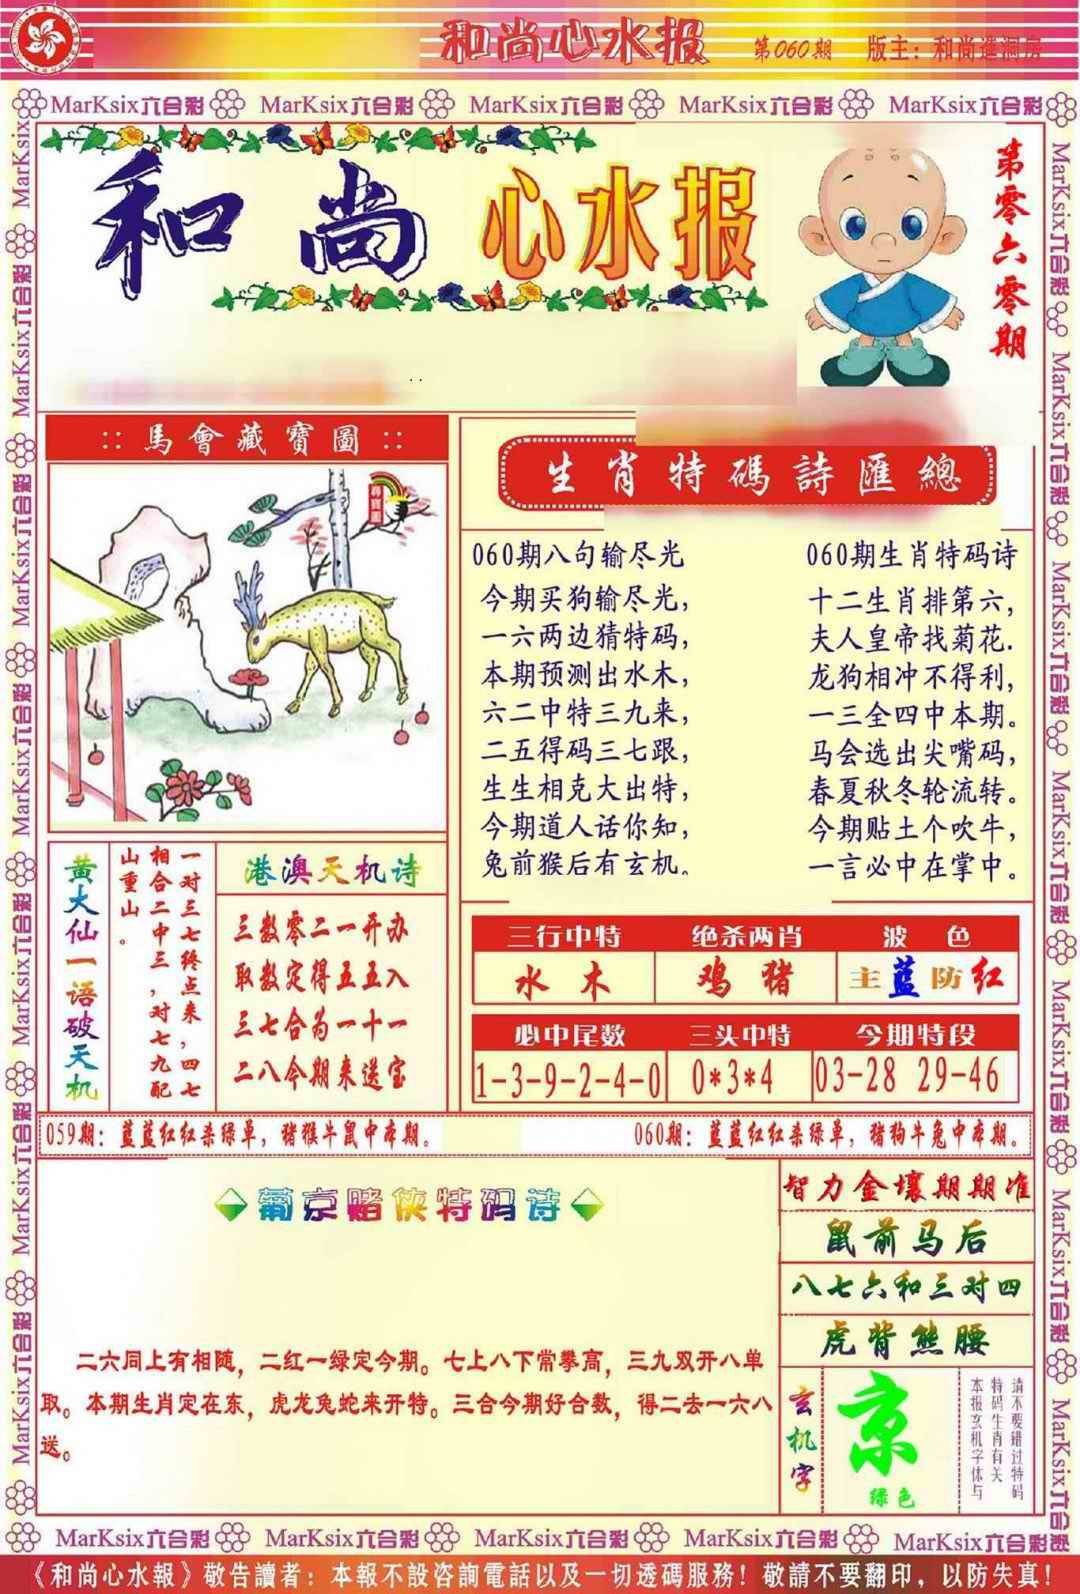 和尚心水报 第060期 版主：和尚進洞房
MarKsix六合彩 MarKsix六合彩 MarKsix六合彩 MarKsix六合彩 MarKsix六合彩
和尚心水报
第零六零期
::馬會藏寶圖::
尋寶圖
生肖特碼詩匯總
060期八句输尽光
今期买狗输尽光，
一六两边猜特码，
本期预测出水木，
六二中特三九来，
二五得码三七跟，
生生相克大出特，
今期道人话你知，
兔前猴后有玄机。
060期生肖特码诗
十二生肖排第六，
夫人皇帝找菊花.
龙狗相冲不得利，
一三全四中本期。
马会选出尖嘴码，
春夏秋冬轮流转。
今期贴土个吹牛，
一言必中在掌中。
黄大仙一语破天机
一对三七终点来，四七
相合二中三，对七九配
山重山。
港澳天机诗
三数零二一开办
取数定得五五入
三七合为一十一
二八今期来送宝
三行中特 绝杀两肖 波色
水木 鸡猪 主蓝防红
必中尾数 三头中特 今期特段
1-3-9-2-4-0 0*3*4 03-28 29-46
059期：蓝蓝红红杀绿单，猪猴牛鼠中本期。
060期：蓝蓝红红杀绿单，猪狗牛兔中本期。
葡京赌侠特码诗
二六同上有相随，二红一绿定今期。七上八下常攀高，三九双开八单
取。本期生肖定在东，虎龙兔蛇来开特。三合今期好合数，得二去一六八
送。
智力金壤期期准
鼠前马后
八七六和三对四
虎背熊腰
玄机字
京
绿色
请不要错过特码
特码生肖有关
本报玄机字体与
MarKsix六合彩 MarKsix六合彩 MarKsix六合彩 MarKsix六合彩 MarKsix六合彩
《和尚心水報》敬告讀者：本報不設咨詢電話以及一切透碼服務！敬請不要翻印，以防失真！